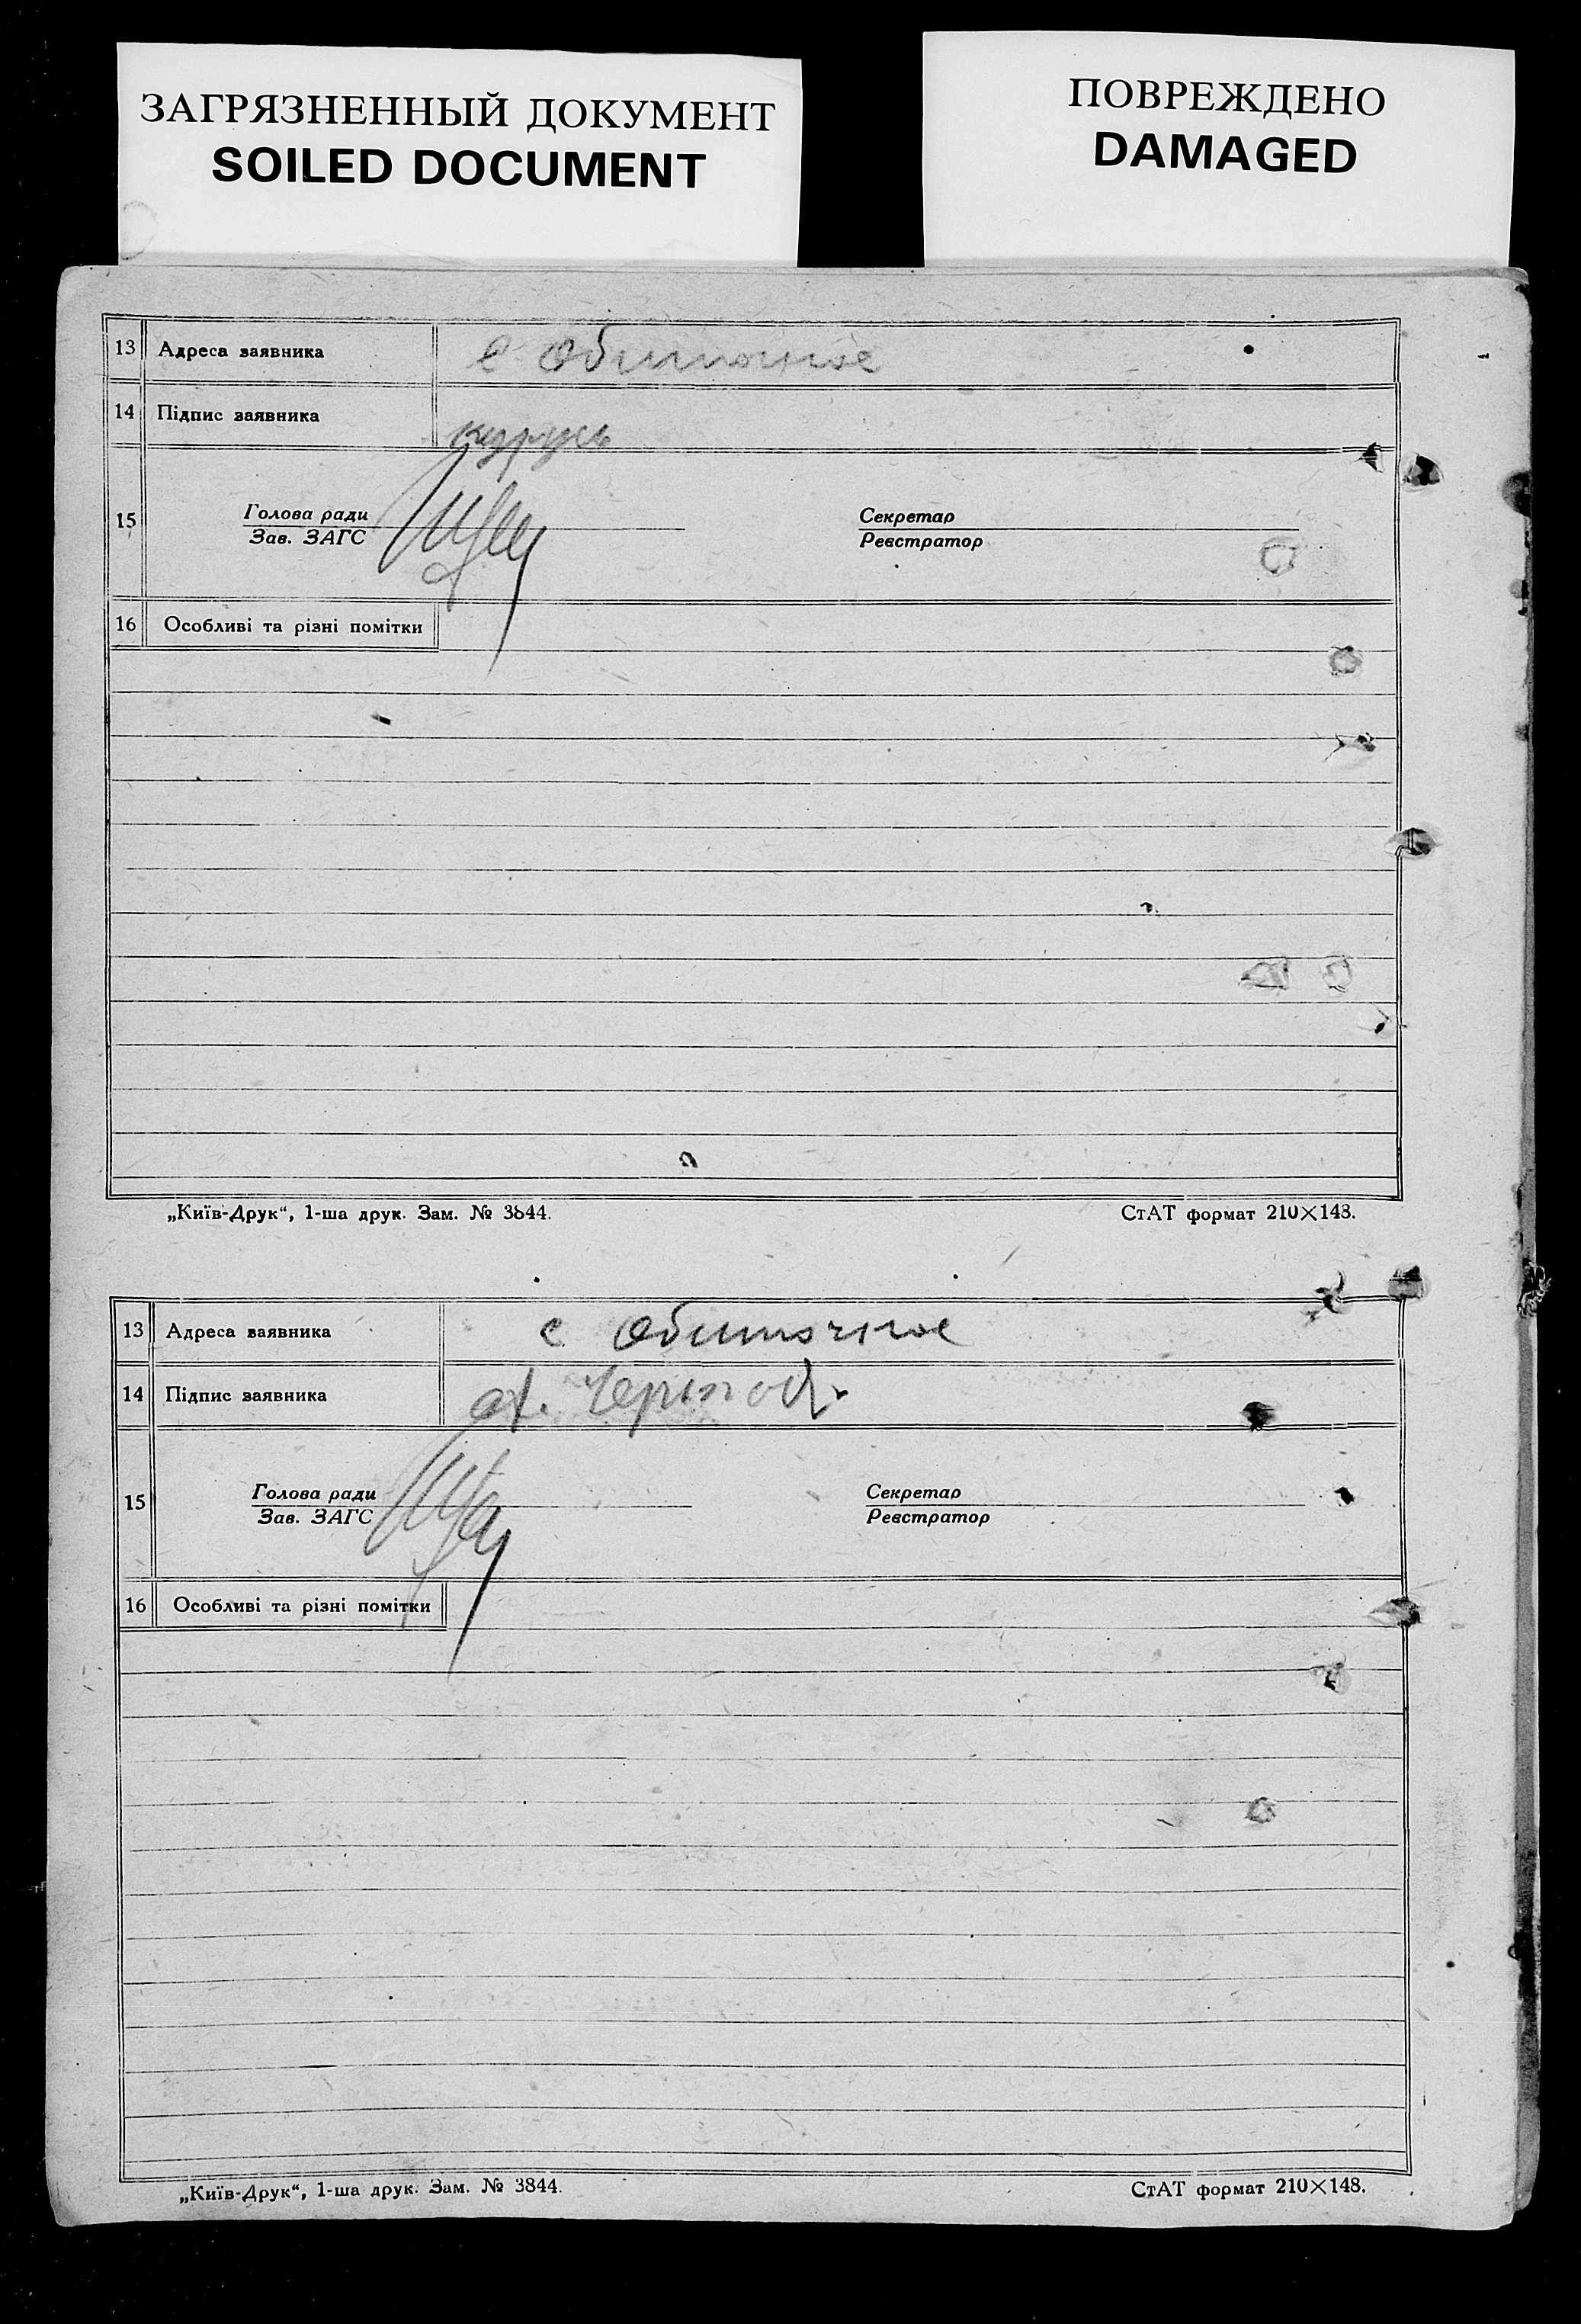 ЗАГРЯЗНЕННЫЙ ДОКУМЕНТ
SOILED DOCUMENT
ПОВРЕЖДЕНО
DAMAGED
13 Адреса заявника с Обиточное
14 Підпис заявника
15 Голова ради Секретар
Зав. ЗАГС Реєстратор
16 Особливі та різні помітки
„Київ-Друк“, 1-ша друк. Зам. № 3844. СтАТ формат 210×148.
13 Адреса заявника с Обиточное
14 Підпис заявника
15 Голова ради Секретар
Зав. ЗАГС Реєстратор
16 Особливі та різні помітки
„Київ-Друк“, 1-ша друк. Зам. № 3844. СтАТ формат 210×148.